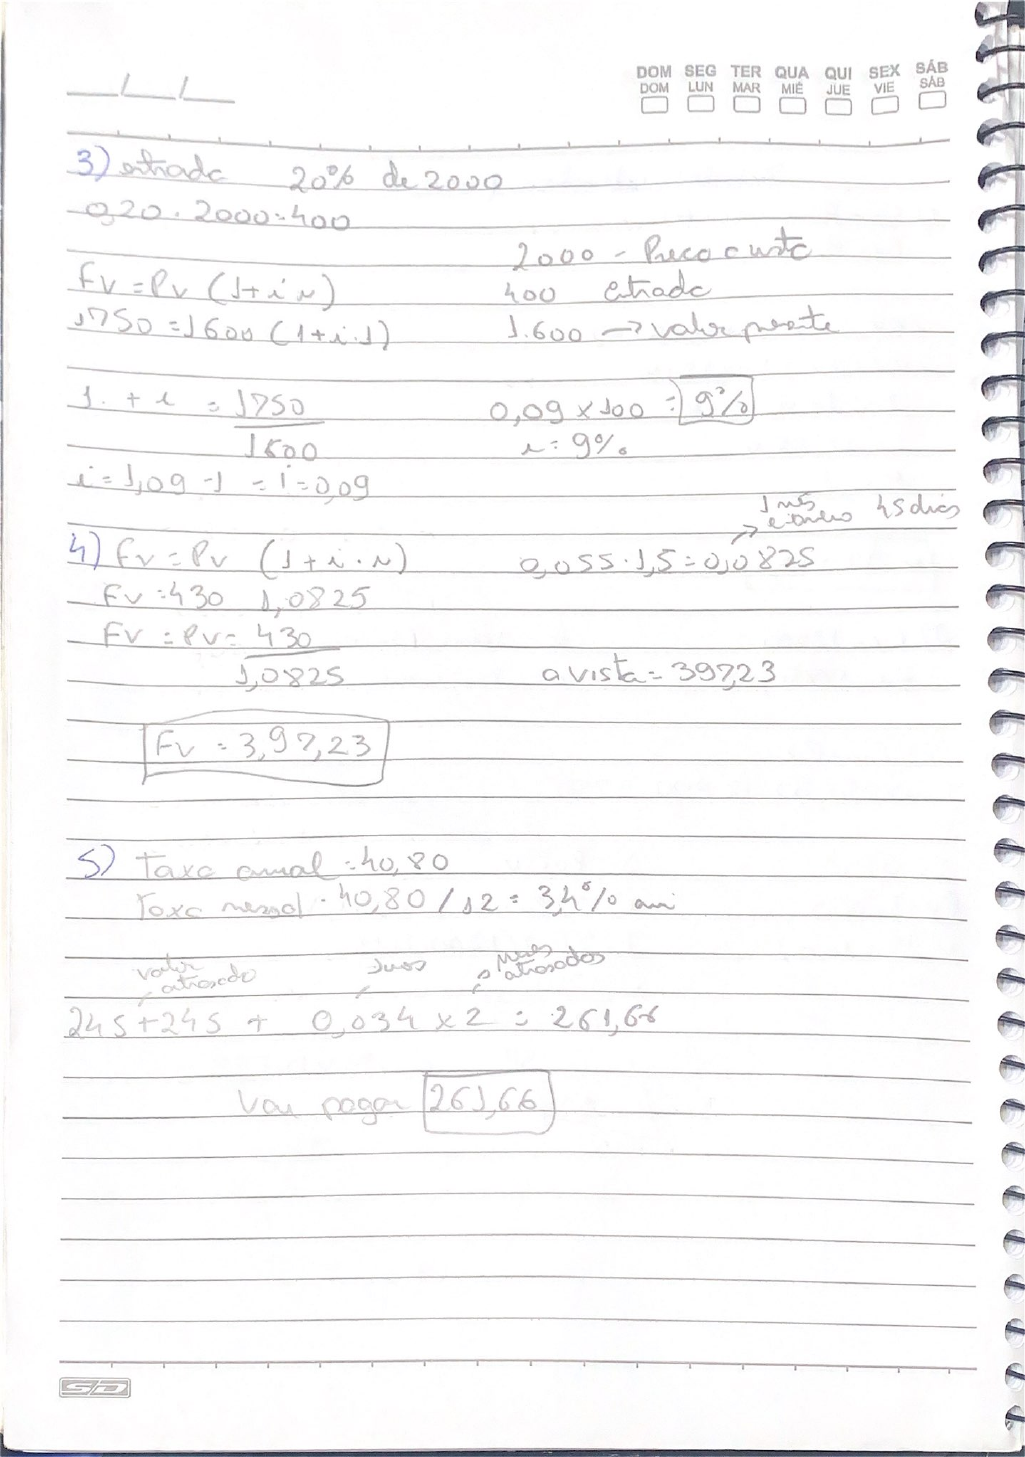 __/__/__
DOM SEG TER QUA QUI SEX SÁB
DOM LUN MAR MIÉ JUE VIE SÁB
3) entrada 20% de 2000
0,20 . 2000 = 400
2000 - Preco custo
Fv = Pv (1+i n)
400 entrada
1750 = 1600 (1+i.1)
1.600 → valor presente
1. + i = 1750
1600
0,09 x 100 = 9%
i = 9%
i = 1,09 -1 = i = 0,09
1 mês e 45 dias
4) Fv = Pv (1+i.n)
0,055 . 1,5 = 0,0825
Fv = 430 1,0825
Fv = Pv = 430
1,0825
a vista = 397,23
Fv = 3,97,23
5) Taxa anual = 40,80
Taxa mensal . 40,80 / 12 = 3,4% am
valor atrasado
Juros
meses atrasados
245 + 245 + 0,034 x 2 = 261,66
Vai pagar 261,66
SD